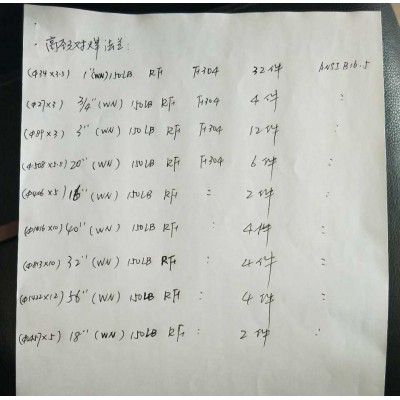 高颈对焊法兰:
(Φ34×3.5) 1"(WN) 150LB RF TP304 32件 ANSI B16.5
(Φ27×3) 3/4"(WN) 150LB RF TP304 4件 :
(Φ89×3) 3"(WN) 150LB RF TP304 12件 :
(Φ508×5.5) 20"(WN) 150LB RF TP304 6件 :
(Φ406×5) 16"(WN) 150LB RF : 2件 :
(Φ1016×10) 40"(WN) 150LB RF : 4件 :
(Φ813×10) 32"(WN) 150LB RF : 4件 :
(Φ1422×12) 56"(WN) 150LB RF : 4件 :
(Φ457×5) 18"(WN) 150LB RF : 2件 :